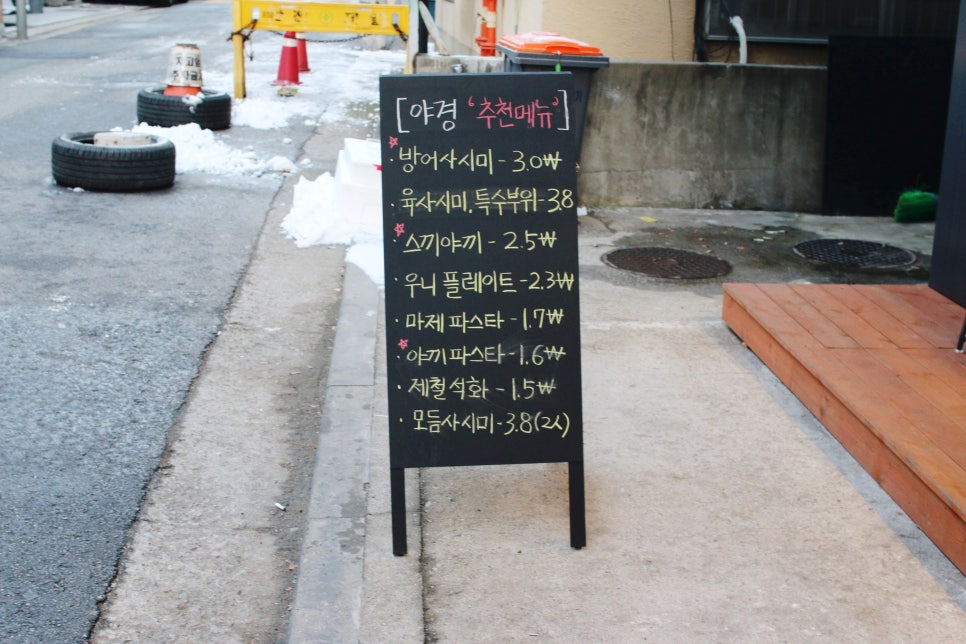 [야경 '추천메뉴']
· 방어사시미 - 3.0₩
· 육사시미, 특수부위 - 3.8
· 스끼야끼 - 2.5₩
· 우니 플레이트 - 2.3₩
· 마제파스타 - 1.7₩
· 야끼파스타 - 1.6₩
· 제철석화 - 1.5₩
· 모듬사시미 - 3.8(2人)